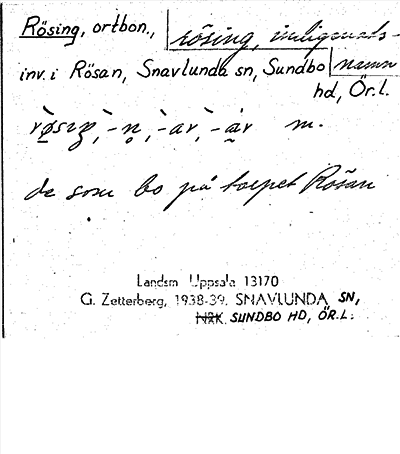 Rösing, ortbon., rösing, inligenals-
inv. i Rösan, Snavlunda sn, Sundbo namn
hd, Ör.l.
røsiŋ, -n, -ar, -ar m.
de som bo på torpet Rösan
Landsm Uppsala 13170
G. Zetterberg, 1938-39. SNAVLUNDA SN,
NRK. SUNDBO HD, ÖR.L.